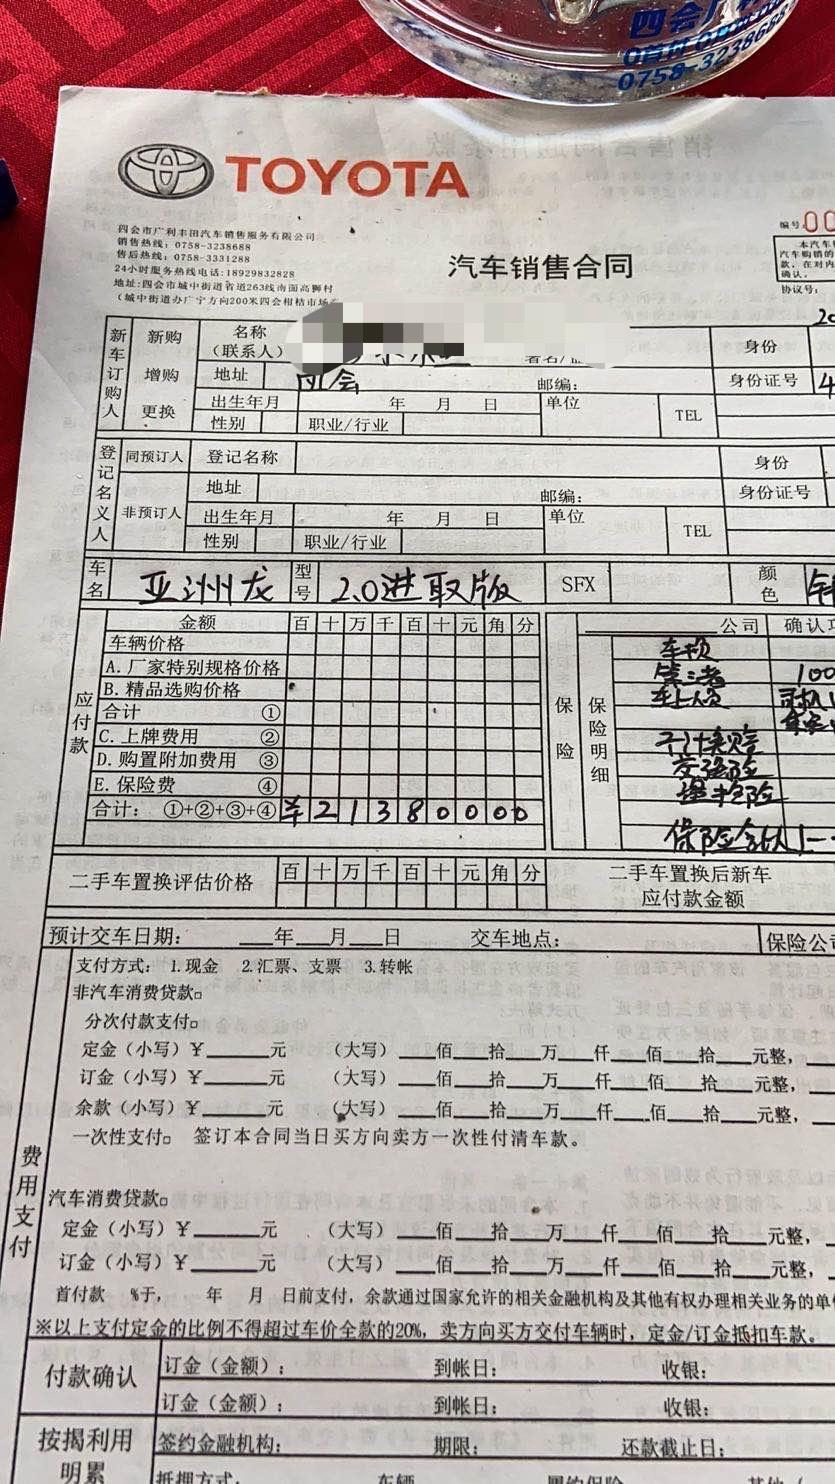 四会广利
0首付
0758-3238688
TOYOTA
四会市广利丰田汽车销售服务有限公司
销售热线：0758-3238688
售后热线：0758-3331288
24小时服务热线电话：18929832828
地址：四会市城中街道省道263线南面高狮村
（城中街道办广宁方向200米四会柑桔市场
汽车销售合同
编号：00
本汽车
汽车购销的
款，在对内
确认。
协议号：
新车订购人 新购 增购 更换
名称（联系人） 身份 20
地址 四会 邮编： 身份证号 4
出生年月 年 月 日 单位 TEL
性别 职业/行业
登记名义人 同预订人 非预订人
登记名称 身份
地址 邮编： 身份证号
出生年月 年 月 日 单位 TEL
性别 职业/行业
车名 亚洲龙 型号 2.0进取版 SFX 颜色
应付款 金额 百 十 万 千 百 十 元 角 分
车辆价格
A.厂家特别规格价格
B.精品选购价格
合计 ①
C.上牌费用 ②
D.购置附加费用 ③
E.保险费 ④
合计：①+②+③+④ ¥ 2 1 3 8 0 0 0 0
保险 保险明细 公司 确认项
车损
第三者 100
车上人员 司机
不计免赔
交强险
保险
二手车置换评估价格 百 十 万 千 百 十 元 角 分 二手车置换后新车应付款金额
预计交车日期： ___年___月___日 交车地点： 保险公司
费用支付
支付方式：1.现金 2.汇票、支票 3.转帐
非汽车消费贷款□
分次付款支付□
定金（小写）¥______元 （大写）___佰___拾___万___仟___佰___拾___元整，
订金（小写）¥______元 （大写）___佰___拾___万___仟___佰___拾___元整，
余款（小写）¥______元 （大写）___佰___拾___万___仟___佰___拾___元整，
一次性支付□ 签订本合同当日买方向卖方一次性付清车款。
汽车消费贷款□
定金（小写）¥______元 （大写）___佰___拾___万___仟___佰___拾___元整，
订金（小写）¥______元 （大写）___佰___拾___万___仟___佰___拾___元整，
首付款 %于， 年 月 日前支付，余款通过国家允许的相关金融机构及其他有权办理相关业务的单
※以上支付定金的比例不得超过车价全款的20%，卖方向买方交付车辆时，定金/订金抵扣车款。
付款确认 订金（金额）： 到帐日： 收银：
订金（金额）： 到帐日： 收银：
按揭利用明累 签约金融机构： 期限： 还款截止日：
抵押方式： 车辆 履约保险 其他（